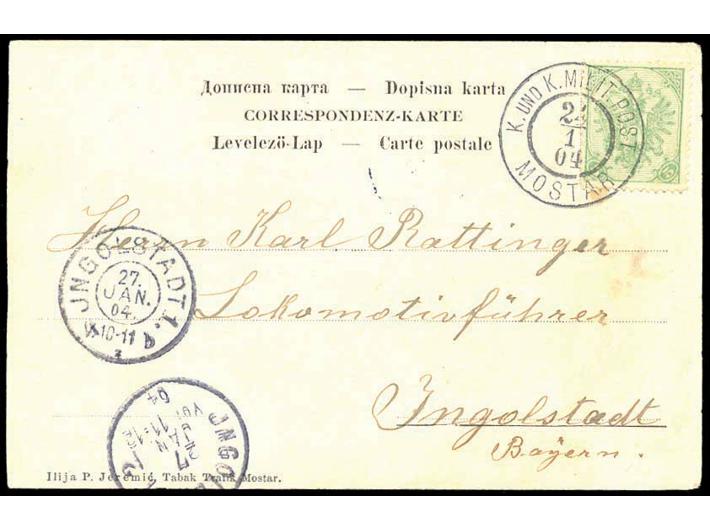 Дописна карта — Dopisna karta
CORRESPONDENZ-KARTE
Levelezö-Lap — Carte postale
K. UND K. MILIT. POST
24
1
04
MOSTAR
5
Herrn Karl Rattinger
Lokomotivführer
Ingolstadt
Bayern.
JNGOLSTADT 1.
27.
JAN.
04.
10-11
27
JAN
04
Vor 11-12
Ilija P. Jeremić, Tabak Trafik Mostar.